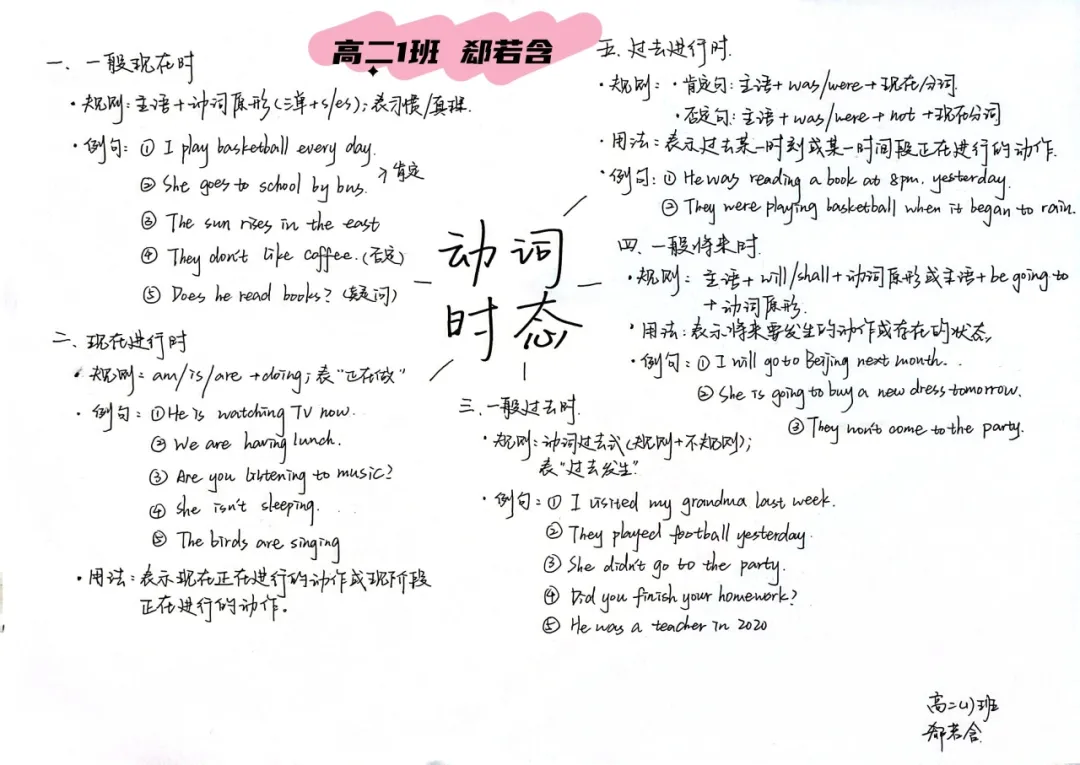 高二1班 郄若含
一、一般现在时
·规则：主语+动词原形(三单+s/es)；表习惯/真理.
·例句：① I play basketball every day.
② She goes to school by bus. 肯定
③ The sun rises in the east
④ They don't like coffee.(否定)
⑤ Does he read books? (疑问)
二、现在进行时
·规则：am/is/are +doing；表"正在做"
·例句：①He is watching TV now.
② We are having lunch.
③ Are you listening to music?
④ She isn't sleeping.
⑤ The birds are singing
·用法：表示现在正在进行的动作或现阶段
正在进行的动作。
动词
时态
三、一般过去时.
·规则：动词过去式(规则+不规则)；
表"过去发生"
·例句：① I visited my grandma last week.
② They played football yesterday.
③ She didn't go to the party.
④ Did you finish your homework?
⑤ He was a teacher in 2020
五、过去进行时.
·规则：·肯定句：主语+was/were+现在分词
·否定句：主语+was/were+not+现在分词
·用法：表示过去某一时刻或某一时间段正在进行的动作.
·例句：① He was reading a book at 8pm. yesterday.
② They were playing basketball when it began to rain.
四、一般将来时.
·规则：主语+will/shall+动词原形或主语+be going to
+动词原形.
·用法：表示将来要发生的动作或存在的状态,
·例句：① I will go to Beijing next month..
② She is going to buy a new dress tomorrow.
③ They won't come to the party.
高二(1)班
郄若含